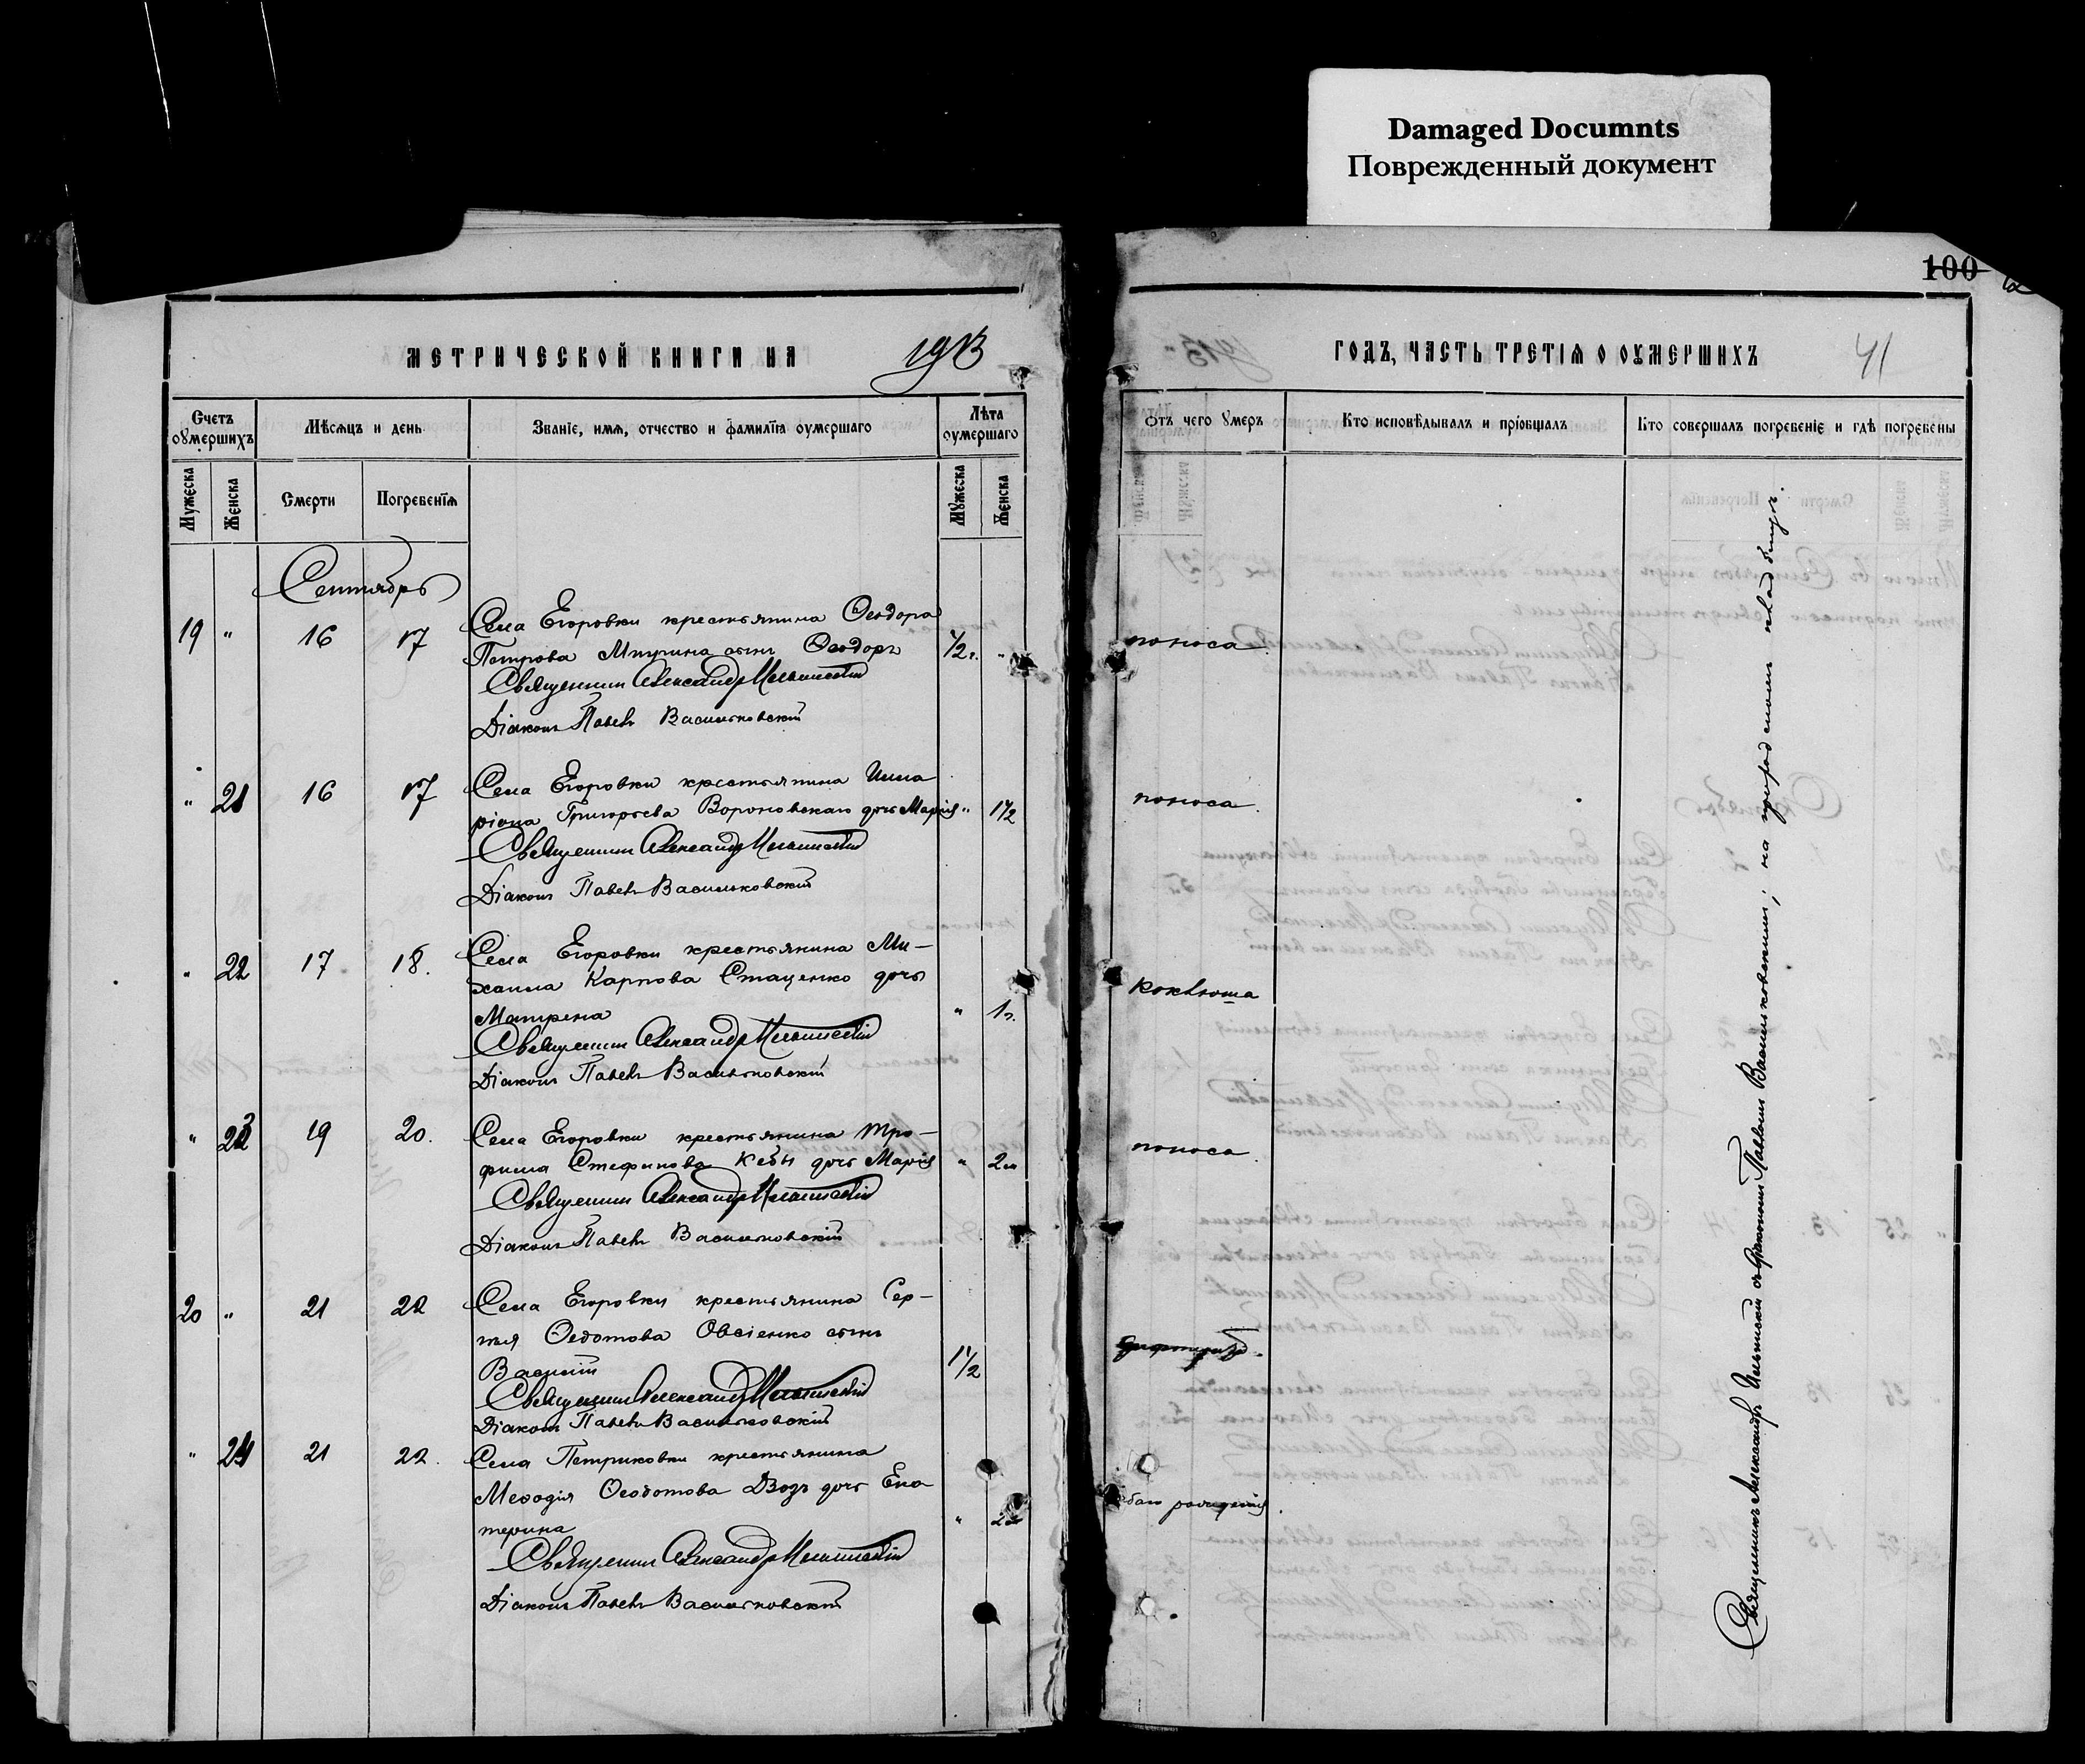 Damaged Documnts
Поврежденный документ
100
МЕТРИЧЕСКОЙ КНИГИ НА 1913
ГОДЪ, ЧАСТЬ ТРЕТІЯ О ОУМЕРШИХЪ
41
Счетъ оумершихъ
Мѣсяцъ и день
Званіе, имя, отчество и фамилія оумершаго
Лѣта оумершаго
Отъ чего умеръ
Кто исповѣдывалъ и пріобщалъ
Кто совершалъ погребеніе и гдѣ погребены
Мужеска
Женска
Смерти
Погребенія
Мужеска
Женска
Сентябрь
19 " 16 17 Села Егоровки крестьянина Ѳеодора
Петрова Мтурина сынъ Ѳеодоръ 1/2 г. " поноса.
Священникъ Александръ Ильинскій
Діаконъ Павелъ Васильковскій
" 21 16 17 Села Егоровки крестьянина Илла
ріона Григорьева Вороновскаго дочь Марія " 1 1/2 поноса.
Священникъ Александръ Ильинскій
Діаконъ Павелъ Васильковскій
" 22 17 18. Села Егоровки крестьянина Ми-
хаила Карпова Стаценко дочь
Матрена " 1 г. коклюша
Священникъ Александръ Ильинскій
Діаконъ Павелъ Васильковскій
" 23 19 20. Села Егоровки крестьянина Тро-
фима Стефанова Кебы дочь Марія " 2 м поноса.
Священникъ Александръ Ильинскій
Діаконъ Павелъ Васильковскій
20 " 21 22 Села Егоровки крестьянина Сер-
гія Ѳедотова Овсіенко сынъ
Василій 1 1/2 дифтерита.
Священникъ Александръ Ильинскій
Діаконъ Павелъ Васильковскій
" 24 21 22. Села Петриковки крестьянина
Меѳодія Ѳеодотова Дзозъ дочь Ека
терина "
Священникъ Александръ Ильинскій
Діаконъ Павелъ Васильковскій
Священникъ Александръ Ильинскій съ діакономъ Павломъ Васильковскимъ; на приходскомъ кладбищѣ.